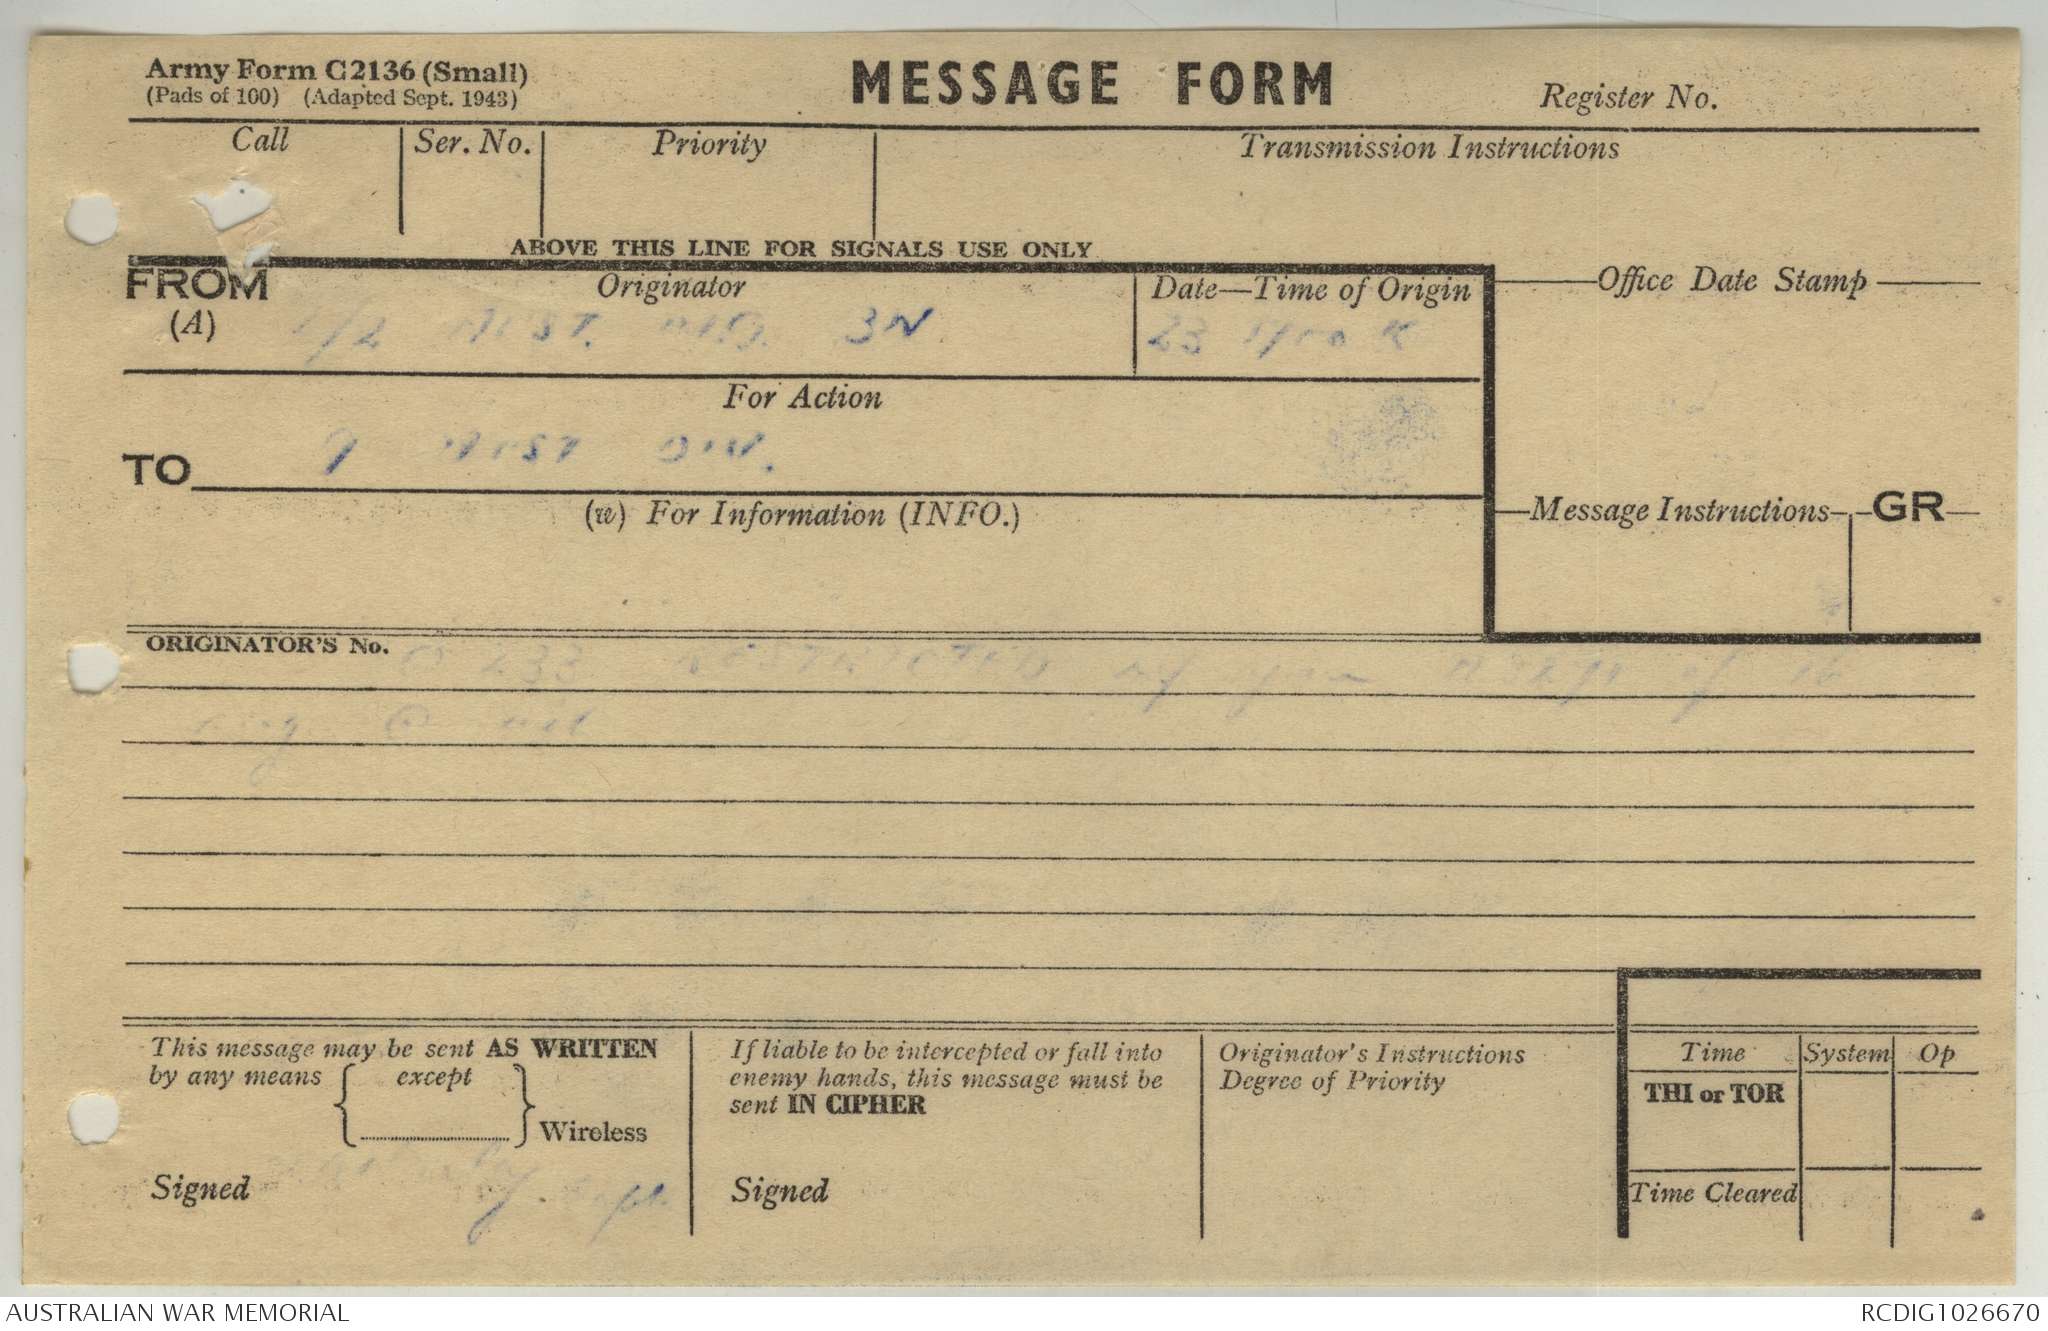 Army Form C2136 (Small)
(Pads of 100) (Adapted Sept. 1943)
MESSAGE FORM
Register No.
Call
Ser. No.
Priority
Transmission Instructions
ABOVE THIS LINE FOR SIGNALS USE ONLY
FROM
(A)
Originator
Date—Time of Origin
Office Date Stamp
1/2 AUST. 3N.
23 K
For Action
TO
9 AUST DIV.
(w) For Information (INFO.)
Message Instructions
GR
ORIGINATOR'S No.
O 233 RESTRICTED of
This message may be sent AS WRITTEN
by any means { except
} Wireless
Signed
Capt.
If liable to be intercepted or fall into
enemy hands, this message must be
sent IN CIPHER
Signed
Originator's Instructions
Degree of Priority
Time
System
Op
THI or TOR
Time Cleared
AUSTRALIAN WAR MEMORIAL
RCDIG1026670